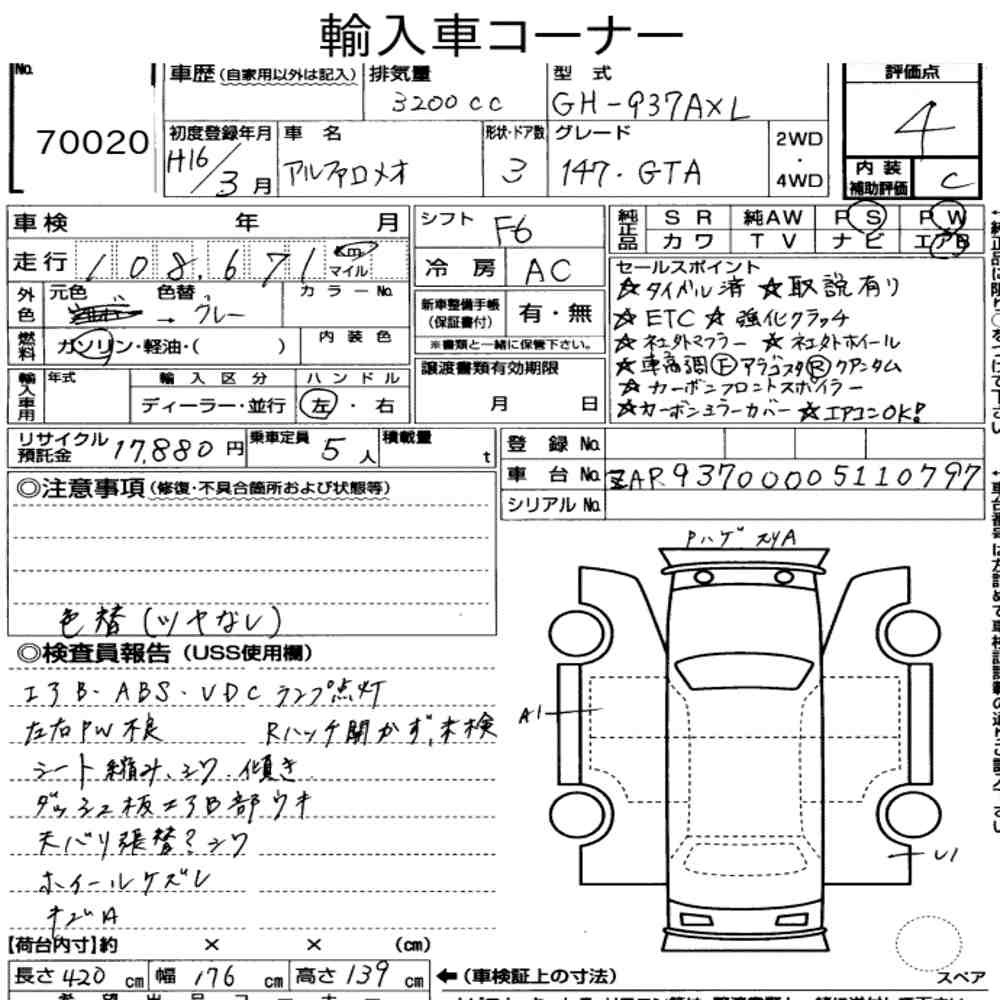 輸入車コーナー
No.
70020
車歴(自家用以外は記入)
排気量
3200cc
型式
GH-937AXL
評価点
4
初度登録年月
H16/3月
車名
アルファロメオ
形状・ドア数
3
グレード
147・GTA
2WD
・
4WD
内装
補助評価
C
車検 年 月
走行 108,671 km
マイル
シフト
F6
冷房
AC
純正品
SR 純AW PS PW
カワ TV ナビ エアB
外色
元色 色替 カラーNo.
→ グレー
燃料
ガソリン・軽油・( )
内装色
新車整備手帳
(保証書付)
有・無
※書類と一緒に保管下さい。
セールスポイント
☆タイベル済 ☆取説有り
☆ETC ☆強化クラッチ
☆社外マフラー ☆社外ホイール
☆車高調Ⓕアラゴスタ Ⓡクアンタム
☆カーボンフロントスポイラー
☆カーボンミラーカバー ☆エアコンOK!
輸入車用
年式
輸入区分
ディーラー・並行
ハンドル
左・右
譲渡書類有効期限
月 日
リサイクル
預託金
17,880円
乗車定員
5人
積載量
t
登録No.
車台No. ZAR93700005110797
シリアルNo.
◎注意事項(修復・不具合箇所および状態等)
色替(ツヤなし)
◎検査員報告(USS使用欄)
エアB・ABS・VDCランプ点灯
左右PW不良 Rハッチ開かず、未検
シート縮み、シワ、傾き
ダッシュ板エアB部ウキ
天バリ張替?シワ
ホイールケズレ
キズA
PハゲスリA
A1
U1
スペア
【荷台内寸】約 × × (cm)
長さ420cm 幅176cm 高さ139cm
←(車検証上の寸法)